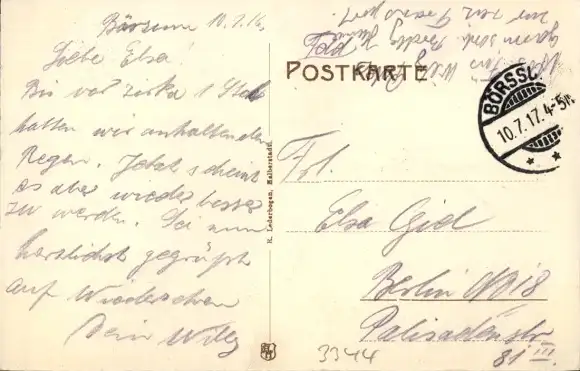 Börssum 10.7.16
Liebe Elsa!
Bis vor zirka 1 Std
hatten wir anhaltenden
Regen. Jetzt scheint
es aber wieder besser
zu werden. Sei nun
herzlichst gegrüßt
auf Wiedersehen
Dein Willy
R. Lederbogen, Halberstadt.
POSTKARTE
BÖRSSU
10.7.17.4-5N
Frl.
Elsa Gid
Berlin NO 18
Palisadenstr
81 III
3344